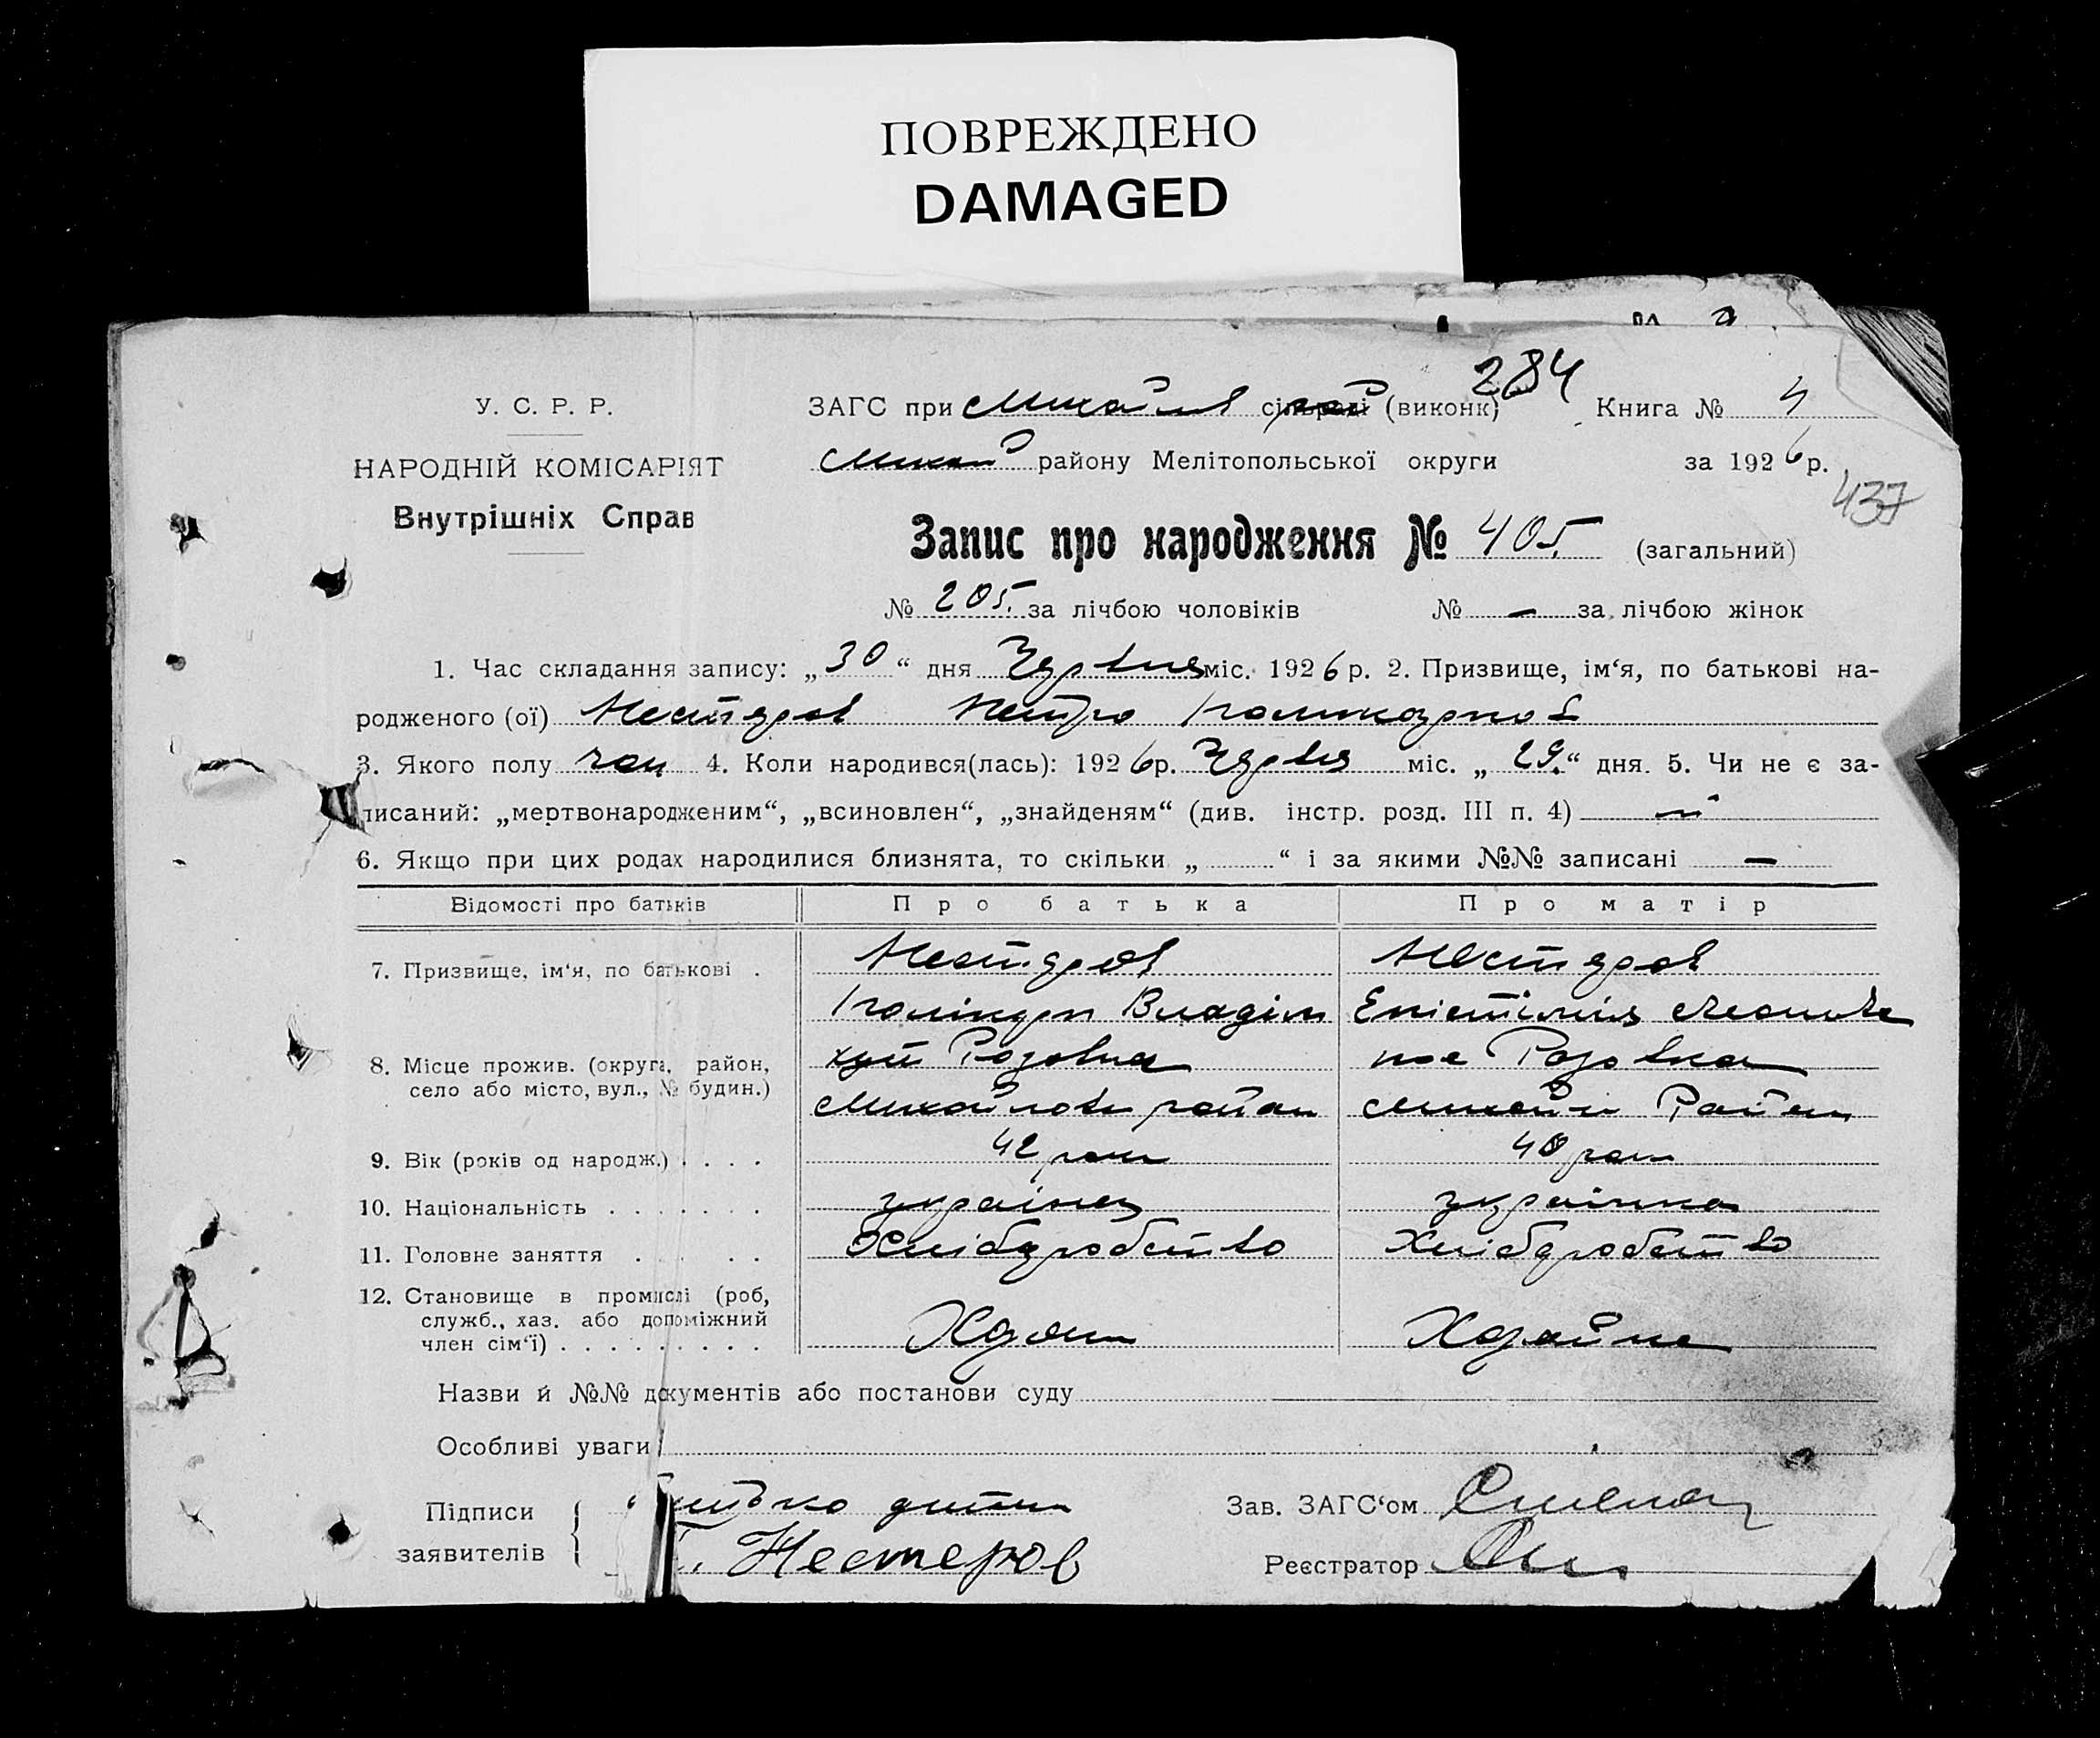 ПОВРЕЖДЕНО
DAMAGED
284
У. С. Р. Р.
ЗАГС при Михайлів сільраді рай (виконк) Книга № 4
НАРОДНІЙ КОМІСАРІЯТ
Внутрішніх Справ
Михай району Мелітопольської округи за 1926 р.
437
Запис про народження № 405. (загальний)
№ 205. за лічбою чоловіків № — за лічбою жінок
1. Час складання запису: „30“ дня Червня міс. 1926 р. 2. Призвище, ім‘я, по батькові на-
родженого (ої) Нестеров Петро
3. Якого полу чол 4. Коли народився(лась): 1926 р. Червня міс. „29.“ дня. 5. Чи не є за-
писаний: „мертвонародженим“, „всиновлен“, „знайденям“ (див. інстр. розд. III п. 4)
6. Якщо при цих родах народилися близнята, то скільки „ “ і за якими №№ записані —
Відомості про батьків Про батька Про матір
7. Призвище, ім‘я, по батькові . Нестеров Нестеров
Владім Епістімія
8. Місце прожив. (округа, район, село або місто, вул., № будин.) хут Розовка Розовка
Михайлов район Михай Район
9. Вік (років од народж.) . . . . 42 роки 40 рок
10. Національність . . . . . . . українец українка
11. Головне заняття . . . . Хліборобство Хліборобство
12. Становище в промислі (роб, служб., хаз. або допоміжний член сім‘ї) . . . . . . . . . Хозяин Хозяйка
Назви й №№ документів або постанови суду
Особливі уваги
Підписи
заявителів
дитини
Нестеров
Зав. ЗАГС‘ом
Реєстратор